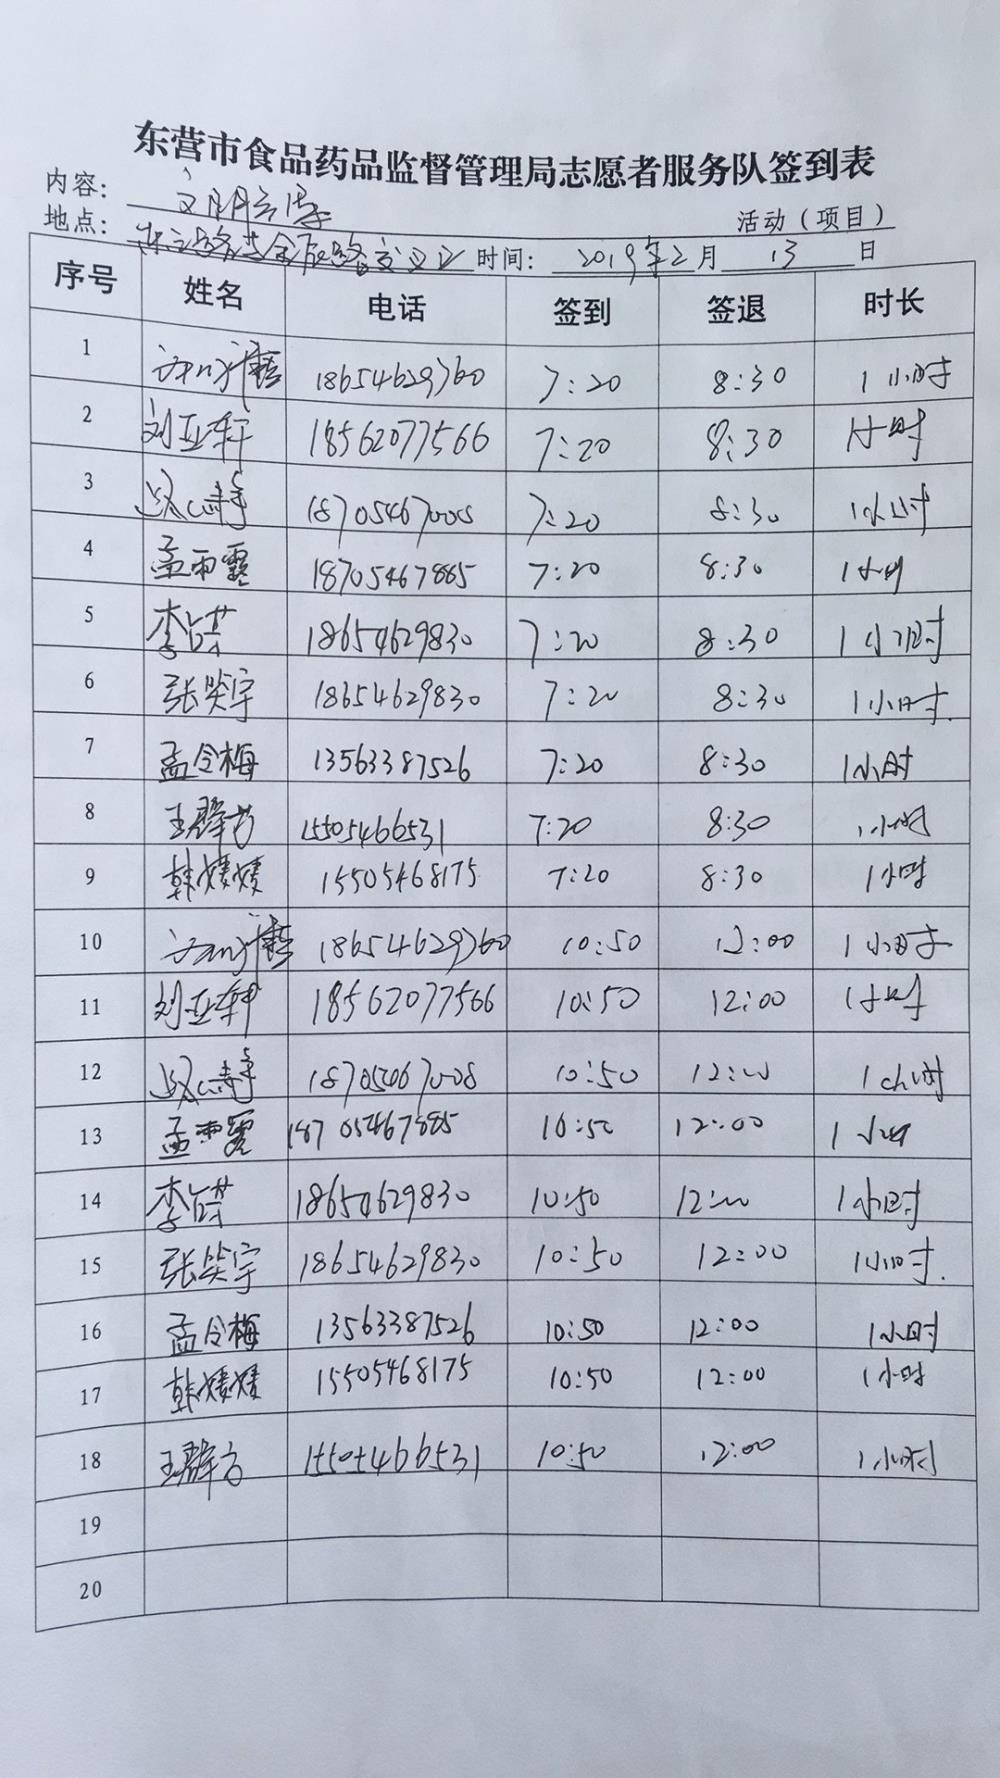 东营市食品药品监督管理局志愿者服务队签到表
内容： 文明宣传 活动（项目）
地点： 路与金辰路交叉口 时间： 2019年2月13日
序号 姓名 电话 签到 签退 时长
1 18654629760 7:20 8:30 1小时
2 刘亚轩 18562077566 7:20 8:30 1小时
3 18705467008 7:20 8:30 1小时
4 孟雨露 18705467885 7:20 8:30 1小时
5 李 18654629830 7:20 8:30 1小时
6 张笑宇 18654629830 7:20 8:30 1小时
7 孟令梅 13563387526 7:20 8:30 1小时
8 王群芳 15505466531 7:20 8:30 1小时
9 韩媛媛 15505468175 7:20 8:30 1小时
10 18654629760 10:50 12:00 1小时
11 刘亚轩 18562077566 10:50 12:00 1小时
12 18705467008 10:50 12:00 1小时
13 孟雨露 18705467885 10:50 12:00 1小时
14 李 18654629830 10:50 12:00 1小时
15 张笑宇 18654629830 10:50 12:00 1小时
16 孟令梅 13563387526 10:50 12:00 1小时
17 韩媛媛 15505468175 10:50 12:00 1小时
18 王群芳 15505466531 10:50 12:00 1小时
19
20